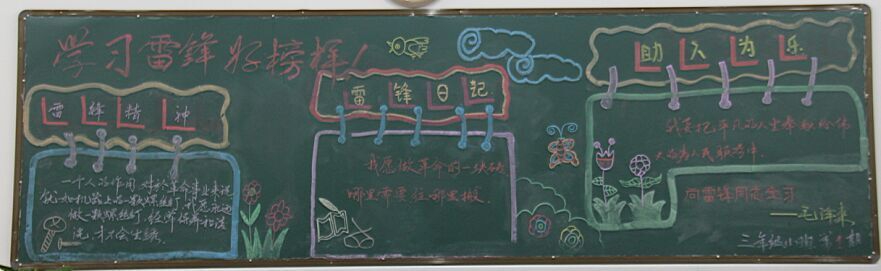 学习雷锋好榜样!
雷锋精神
一个人的作用 对於革命事业来说
就如机器上的一颗螺丝钉 我愿永远
做一颗螺丝钉
才不会生锈
雷锋日记
我愿做革命的一块砖
哪里需要往那里搬
助人为乐
我要把平凡的人生奉献给伟
大的为人民服务中
向雷锋同志学习
——毛泽东
三年级